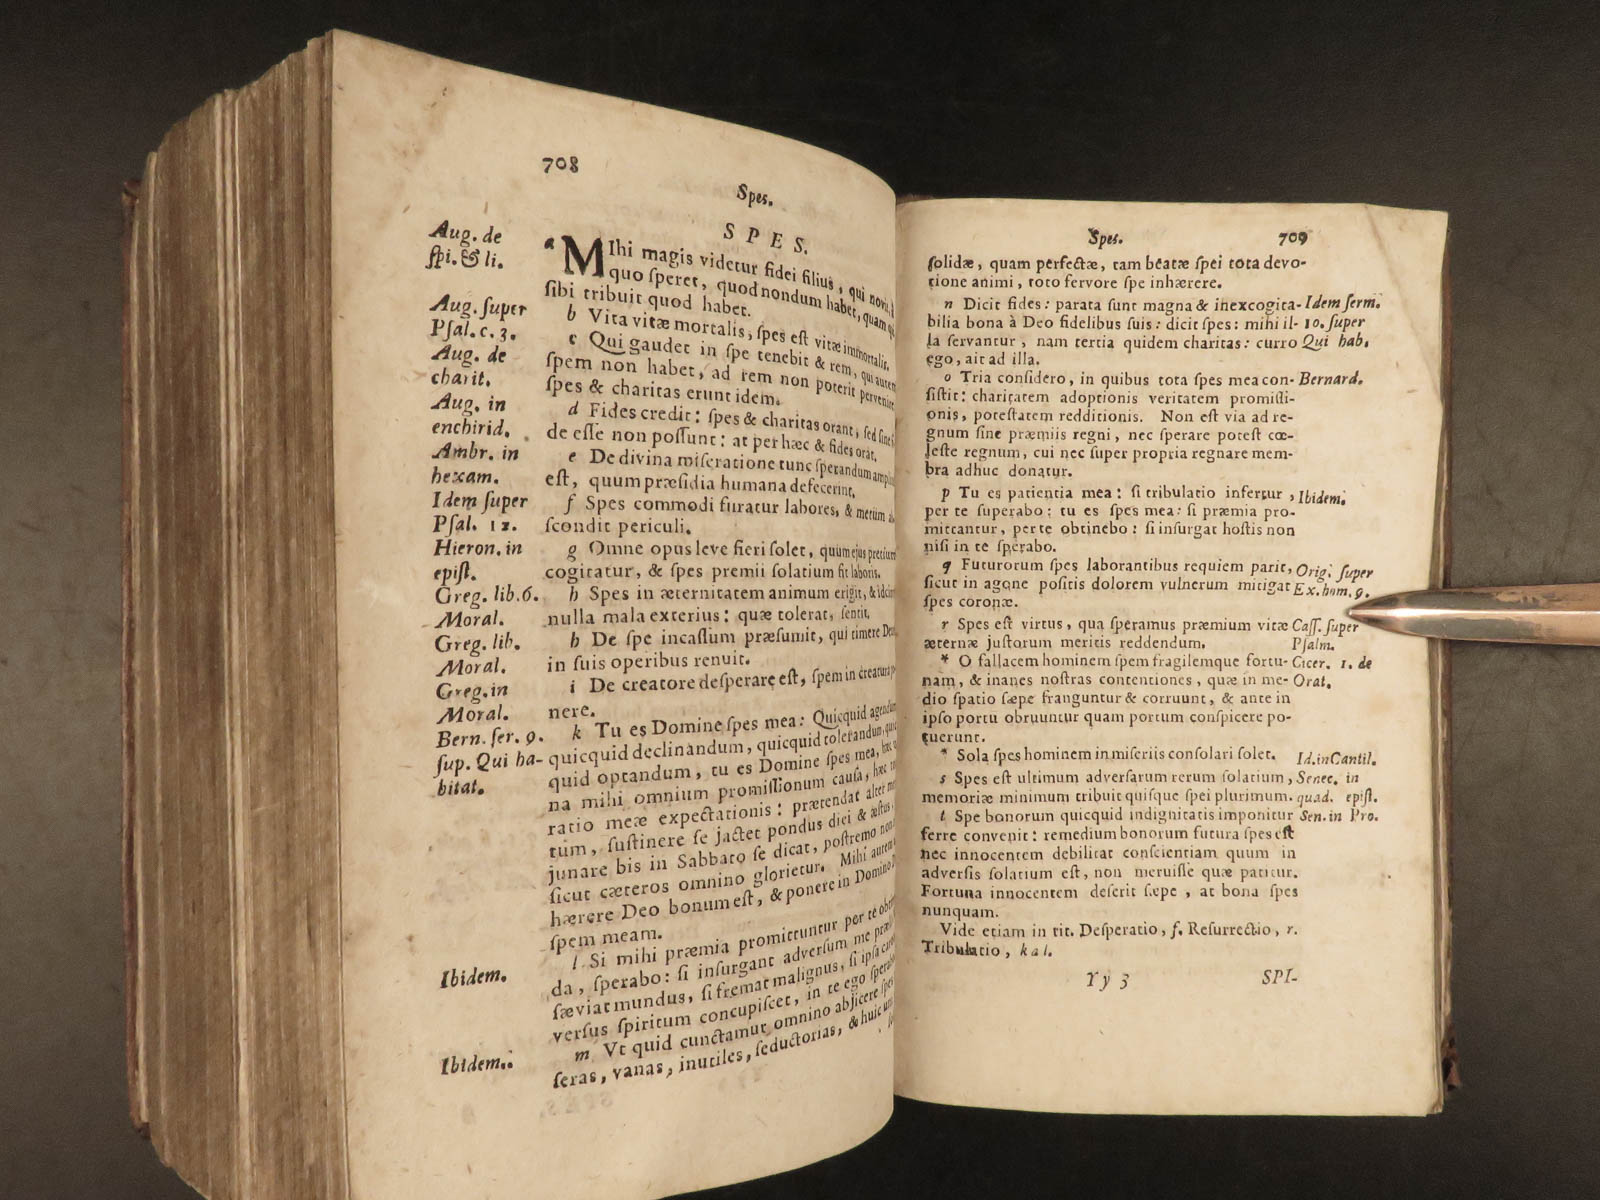 708
Spes.
SPES.
Aug. de
ſpi. & li.
Aug. ſuper
Pſal. c. 3.
Aug. de
charit.
Aug. in
enchirid.
Ambr. in
hexam.
Idem ſuper
Pſal. 12.
Hieron. in
epiſt.
Greg. lib. 6.
Moral.
Greg. lib.
Moral.
Greg. in
Moral.
Bern. ſer. 9.
ſup. Qui ha-
bitat.
Ibidem.
Ibidem.
a MIhi magis videtur fidei filius, qui novit, à
quo ſperet, quod nondum habet, quam qui
ſibi tribuit quod habet.
b Vita vitæ mortalis, ſpes eſt vitæ immortalis.
c Qui gaudet in ſpe tenebit & rem, qui autem
ſpem non habet, ad rem non poterit pervenire
ſpes & charitas erunt idem.
d Fides credit: ſpes & charitas orant, ſed ſine
de eſſe non poſſunt: at per hæc & fides orat.
e De divina miſeratione tunc ſperandum
eſt, quum præſidia humana defecerint.
f Spes commodi furatur labores, & metum
ſcondit periculi.
g Omne opus leve fieri ſolet, quum ejus pretium
cogitatur, & ſpes premii ſolatium fit laboris.
h Spes in æternitatem animum erigit, &
nulla mala exterius: quæ tolerat, ſentit.
h De ſpe incaſſum præſumit, qui timere
in ſuis operibus renuit.
i De creatore deſperare eſt, ſpem in creatura
nere.
k Tu es Domine ſpes mea: Quicquid
quicquid declinandum, quicquid tolerandum,
quid optandum, tu es Domine ſpes mea, hæc
na mihi omnium promiſſionum cauſa, hæc
ratio meæ expectationis: prætendat alter
tum, ſuſtinere ſe jactet pondus diei & æſtus,
junare bis in Sabbato ſe dicat, poſtremo non
ſicut cæteros omnino glorietur. Mihi autem
hærere Deo bonum eſt, & ponere in Domino
ſpem meam.
l Si mihi præmia promittuntur per te
da, ſperabo: ſi inſurgant adverſum me
ſæviat mundus, ſi fremat malignus, ſi ipſa
verſus ſpiritum concupiſcet, in te ego
m Vt quid cunctamur omnino abjicere
ſeras, vanas, inutiles, ſeductorias, & huic
Spes. 709
ſolidæ, quam perfectæ, tam beatæ ſpei tota devo-
tione animi, toto fervore ſpe inhærere.
n Dicit fides: parata ſunt magna & inexcogita- Idem ſerm.
bilia bona à Deo fidelibus ſuis: dicit ſpes: mihi il- 10. ſuper
la ſervantur, nam tertia quidem charitas: curro Qui hab.
ego, ait ad illa.
o Tria conſidero, in quibus tota ſpes mea con- Bernard.
ſiſtit: charitatem adoptionis veritatem promiſſi-
onis, poteſtatem redditionis. Non eſt via ad re-
gnum ſine præmiis regni, nec ſperare poteſt cœ-
leſte regnum, cui nec ſuper propria regnare mem-
bra adhuc donatur.
p Tu es patientia mea: ſi tribulatio infertur, Ibidem.
per te ſuperabo: tu es ſpes mea: ſi præmia pro-
mittantur, per te obtinebo: ſi inſurgat hoſtis non
niſi in te ſperabo.
q Futurorum ſpes laborantibus requiem parit, Orig. ſuper
ſicut in agone poſitis dolorem vulnerum mitigat Ex. hom. 9.
ſpes coronæ.
r Spes eſt virtus, qua ſperamus præmium vitæ Caſſ. ſuper
æternæ juſtorum meritis reddendum. Pſalm.
* O fallacem hominem ſpem fragilemque fortu- Cicer. 1. de
nam, & inanes noſtras contentiones, quæ in me- Orat.
dio ſpatio ſæpe franguntur & corruunt, & ante in
ipſo portu obruuntur quam portum conſpicere po-
tuerunt.
* Sola ſpes hominem in miſeriis conſolari ſolet. Id. in Cantil.
s Spes eſt ultimum adverſarum rerum ſolatium, Senec. in
memoriæ minimum tribuit quiſque ſpei plurimum. quad. epiſt.
t Spe bonorum quicquid indignitatis imponitur Sen. in Pro.
ferre convenit: remedium bonorum futura ſpes eſt
nec innocentem debilitat conſcientiam quum in
adverſis ſolatium eſt, non meruiſſe quæ patitur.
Fortuna innocentem deſerit ſæpe, at bona ſpes
nunquam.
Vide etiam in tit. Deſperatio, f. Reſurrectio, r.
Tribulatio, k a l.
Yy 3 SPI-